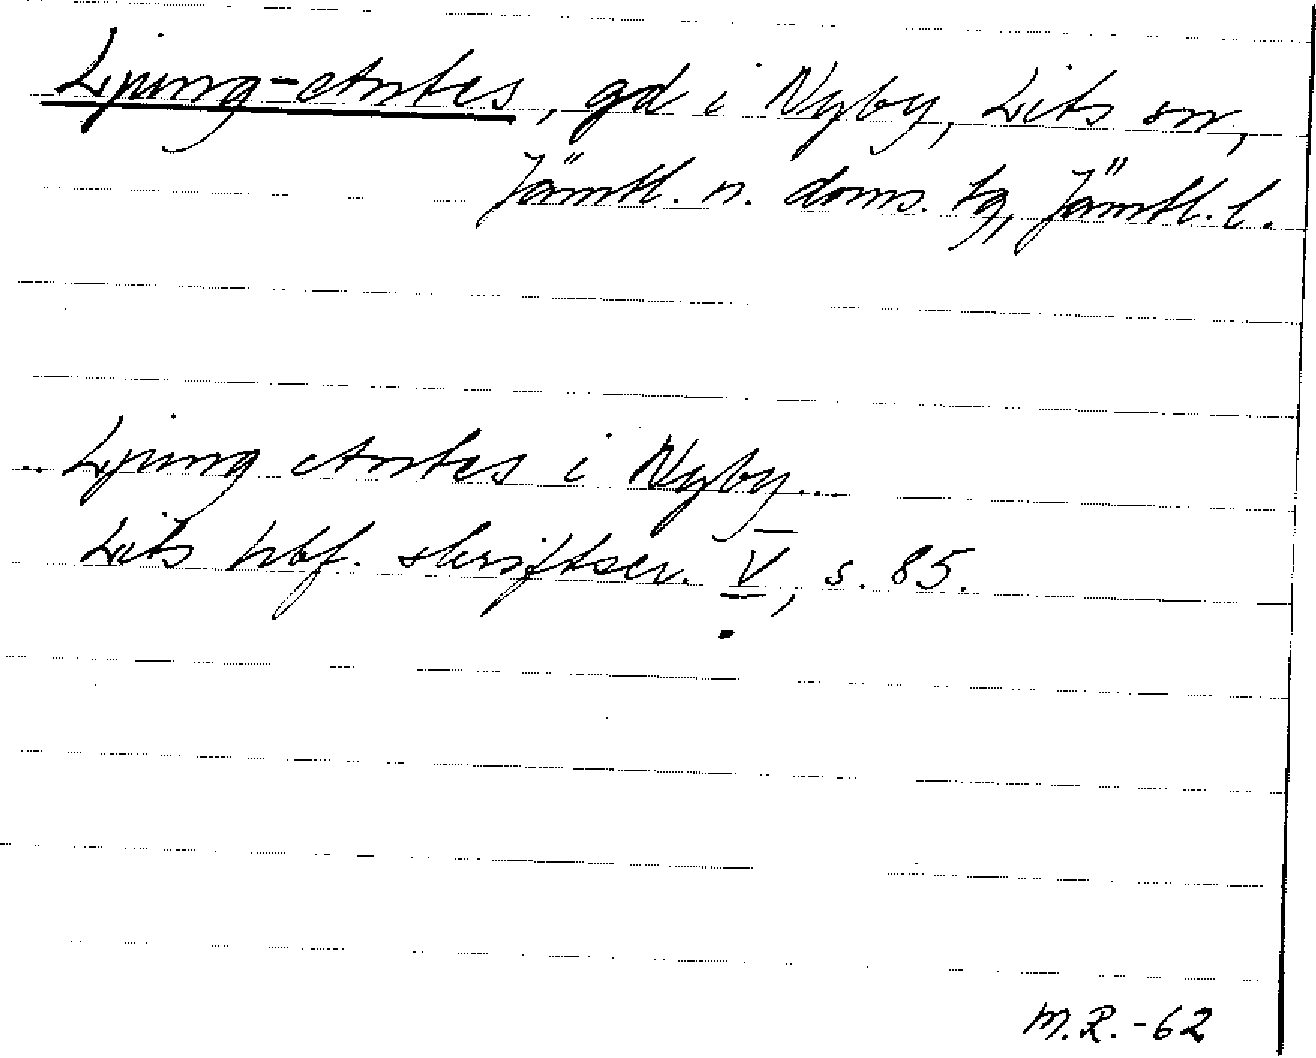 Ljung-Antes, gd i Nyby, Lits sn,
Jämtl. n. doms. tg, Jämtl. l.
.. Ljung Antes i Nyby...
Lits hbf. skriftser. V, s. 85.
M.R.-62